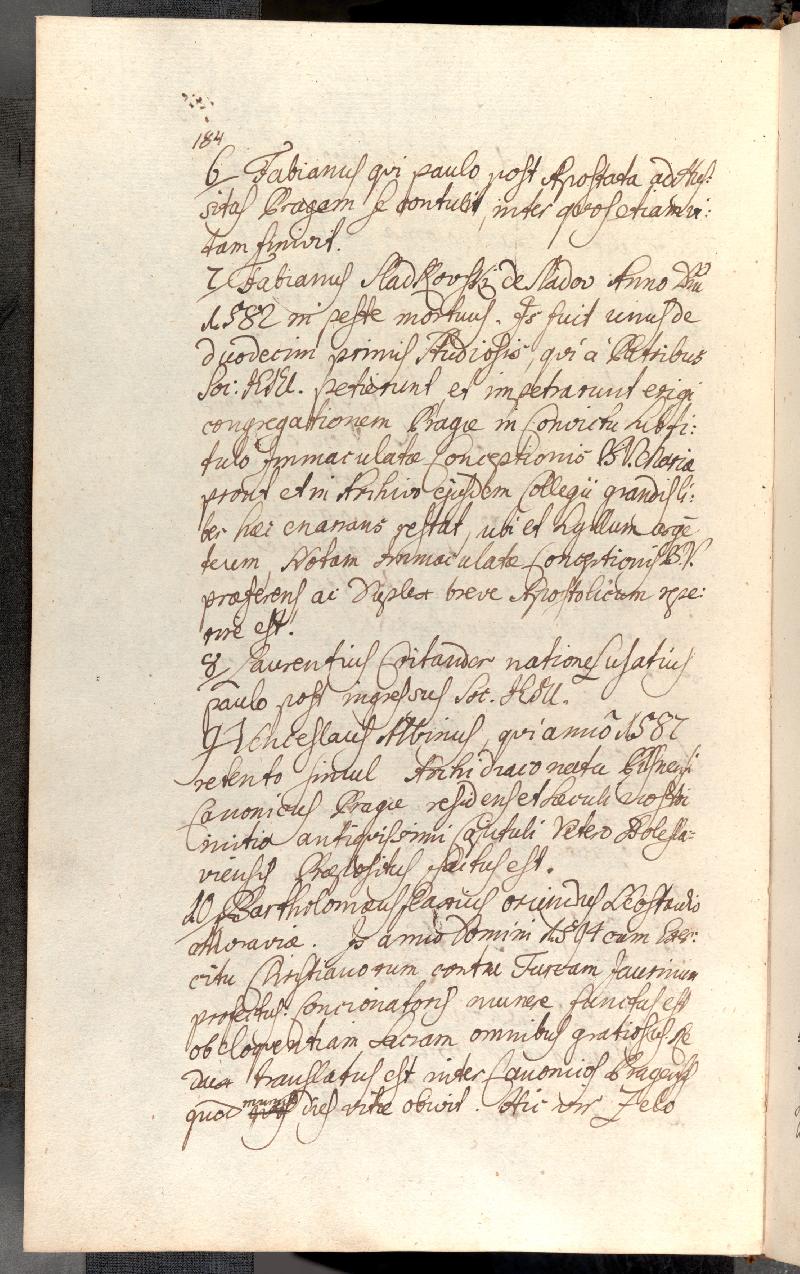 184
6 Fabianus qui paulo post Apostata ad Hus:
sitas Pragam se contulit, inter quos etiam vi:
tam finivit.
7 Fabianus Sladkovski de Sladov Anno Dni
1582 in peste mortuus. Is fuit unus de
duodecim primis Studiosis, qui a Patribus
Soc: JESU. petierunt et impetrarunt erigi
congregationem Pragæ in Convictu sub ti:
tulo Immaculatæ Conceptionis B V. Mariæ
prout et in Archivo ejusdem Collegii grandis li:
ber hæc enarrans restat, ubi et
teum Notam Immaculatæ Conceptionis B.V.
præferens ac Duplex breve Apostolicum repe:
rire est.
8 Laurentius natione Lusatius
paulo post ingressus Soc. JESU.
9 Wenceslaus Albinus, qui anno 1587
retento simul Archidiaconatu Pilsnensi
Canonicus Pragæ residens et sæculi
initio antiquissimi Capituli Vetero Bolesla=
viensis Præpositus est.
10 Bartholomæus oriundus
Moraviæ. Is anno Domini 1594 cum Exer:
citu Christianorum contra Turcam Jaurinum
profectus: Concionatoris munere functus est
ob eloquentiam sacram omnibus gratiosus
translatus est inter Canonicos Pragens
quod munus dies vitæ obivit. Hic vir Zelo